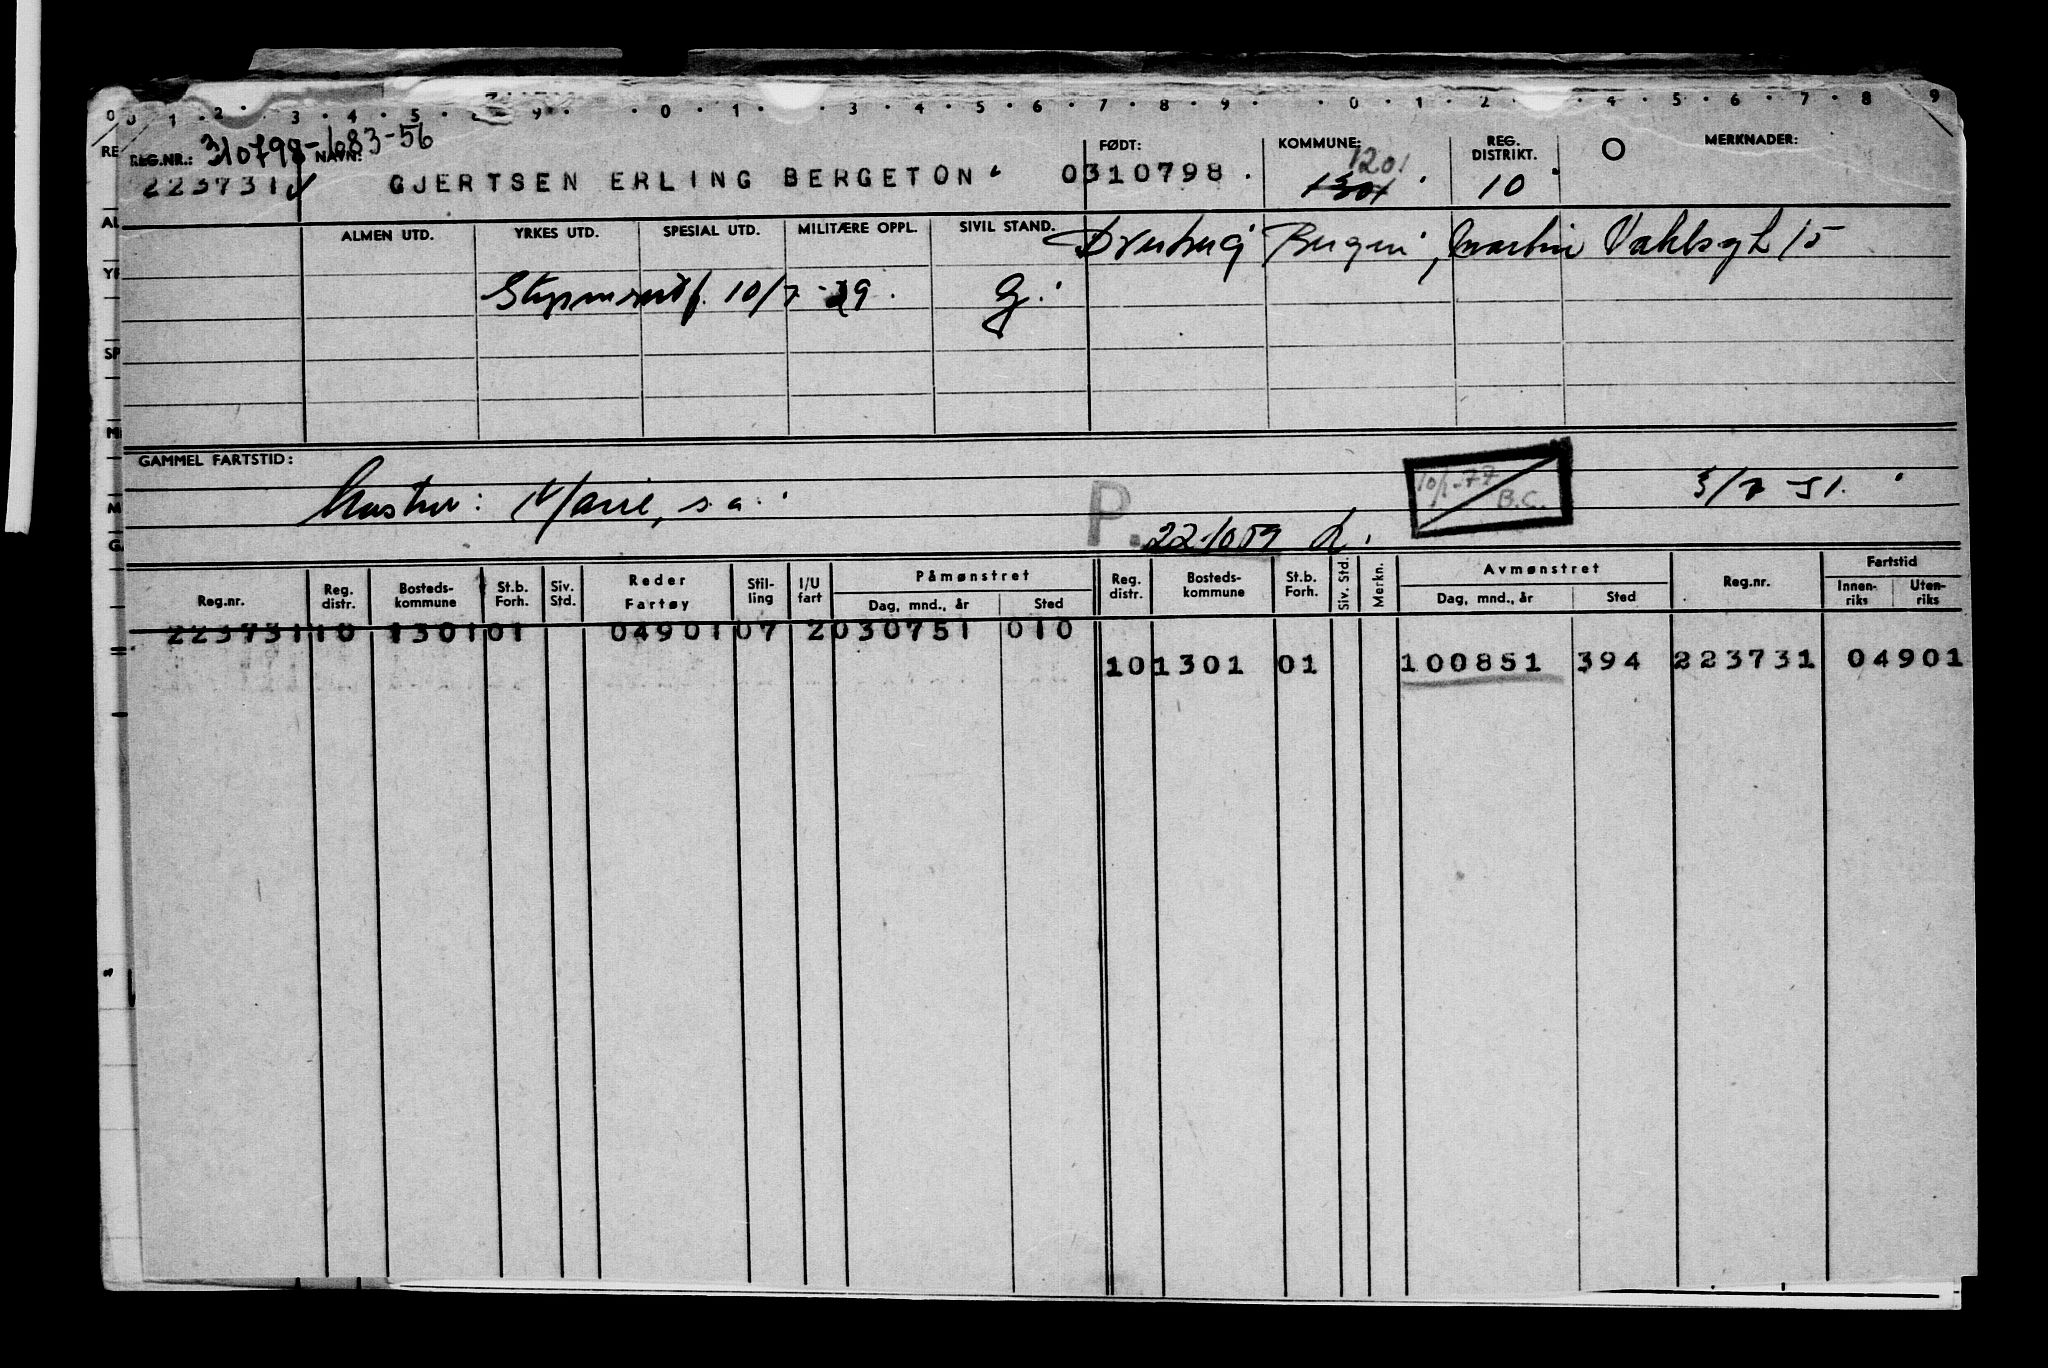 310798-683-56
REG.NR.: NAVN: FØDT: KOMMUNE: REG. DISTRIKT. MERKNADER:
1201
223731 GJERTSEN ERLING BERGETON 0310798 1301 10
ALMEN UTD. YRKES UTD. SPESIAL UTD. MILITÆRE OPPL. SIVIL STAND.
Bergen, Martin Vahlsgt 15
10/7-29. G.
GAMMEL FARTSTID:
Hustru: Marie, s.a.
P. 22-10 59
10/1-77 B.C.
3/7-51.
Reg.nr. Reg. distr. Bosteds-kommune St.b. Forh. Siv. Std. Reder Fartøy Stil-ling I/U fart Påmønstret Dag, mnd., år Sted Reg. distr. Bosteds-kommune St.b. Forh. Siv. Std. Merkn. Avmønstret Dag, mnd., år Sted Reg.nr. Fartstid Innen-riks Uten-riks
223731 10 1301 01 04901 07 2 030751 010
10 1301 01 100851 394 223731 04901